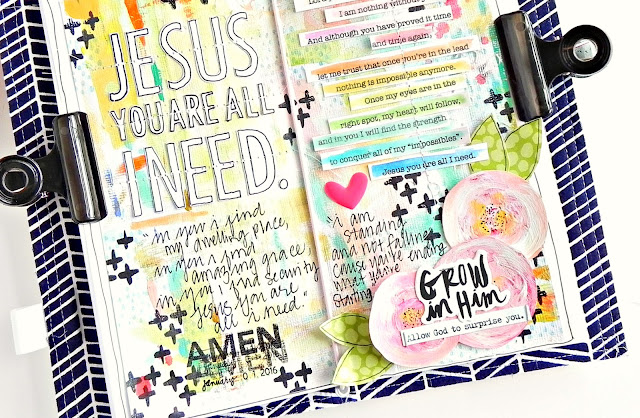 JESUS
YOU ARE ALL
I NEED.
"in you i find
my dwelling place,
in you i find
amazing grace
in you i find security
Jesus you are
all i need."
AMEN
January 01 2016
I am nothing without
And although you have proved it time
and time again,
let me trust that once you're in the lead
nothing is impossible anymore.
Once my eyes are in the
right spot, my heart will follow,
and in you I will find the strength
to conquer all of my "impossibles".
Jesus you are all I need.
"i am
standing
and not falling
cause you're ending
what you've
starting
GROW
in Him
Allow God to surprise you.